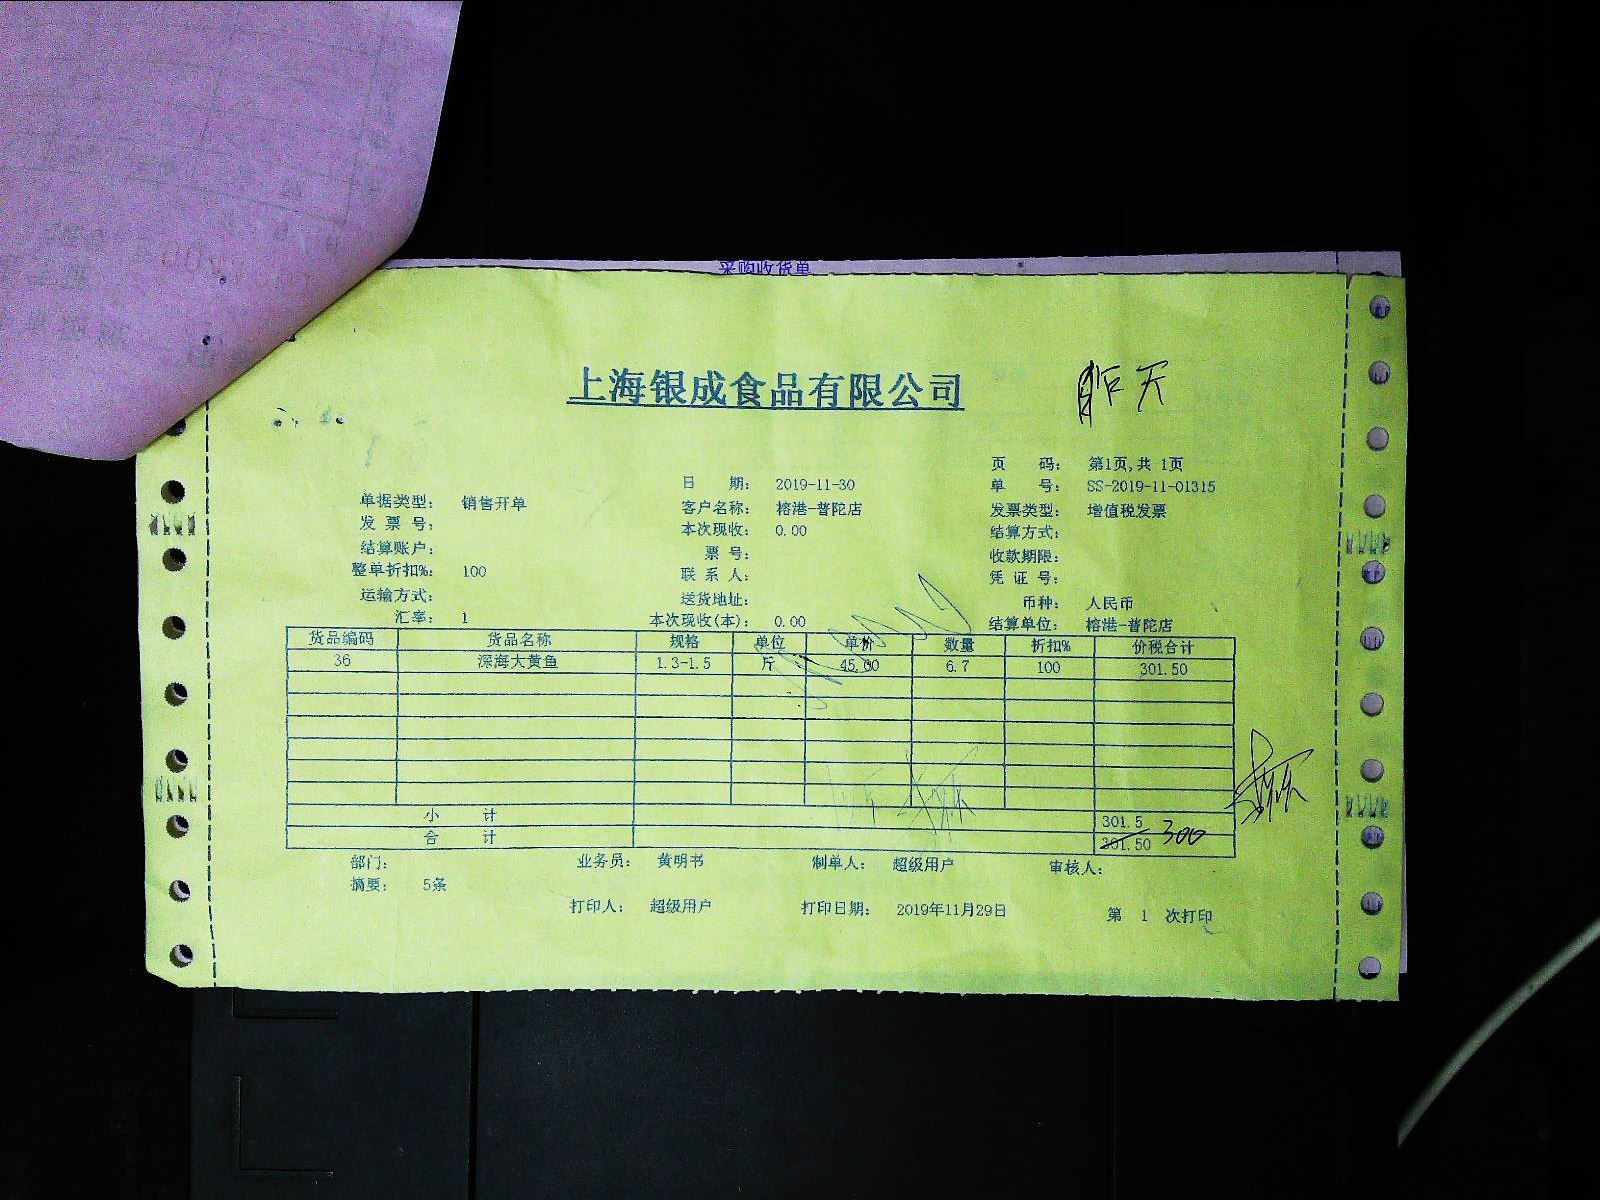 采购收货单
上海银成食品有限公司
昨天
页 码: 第1页,共 1页
日 期: 2019-11-30 单 号: SS-2019-11-01315
单据类型: 销售开单 客户名称: 榕港-普陀店 发票类型: 增值税发票
发 票 号: 本次现收: 0.00 结算方式:
结算账户: 票 号: 收款期限:
整单折扣%: 100 联 系 人: 凭 证 号:
运输方式: 送货地址: 币种: 人民币
汇率: 1 本次现收(本): 0.00 结算单位: 榕港-普陀店
货品编码 货品名称 规格 单位 单价 数量 折扣% 价税合计
36 深海大黄鱼 1.3-1.5 斤 45.00 6.7 100 301.50
小 计 301.5
合 计 301.50 300
部门: 业务员: 黄明书 制单人: 超级用户 审核人:
摘要: 5条
打印人: 超级用户 打印日期: 2019年11月29日 第 1 次打印